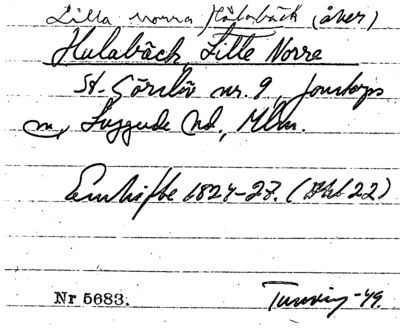 Lilla norra Hålabäck (åker)
Hulabäck, Lille Norre
St. Görslöv nr. 9, Jonstorps
sn, Luggude hd, Mlm.
Enskifte 1824-27. (Akt 22)
Nr 5683. Tuneing-49.